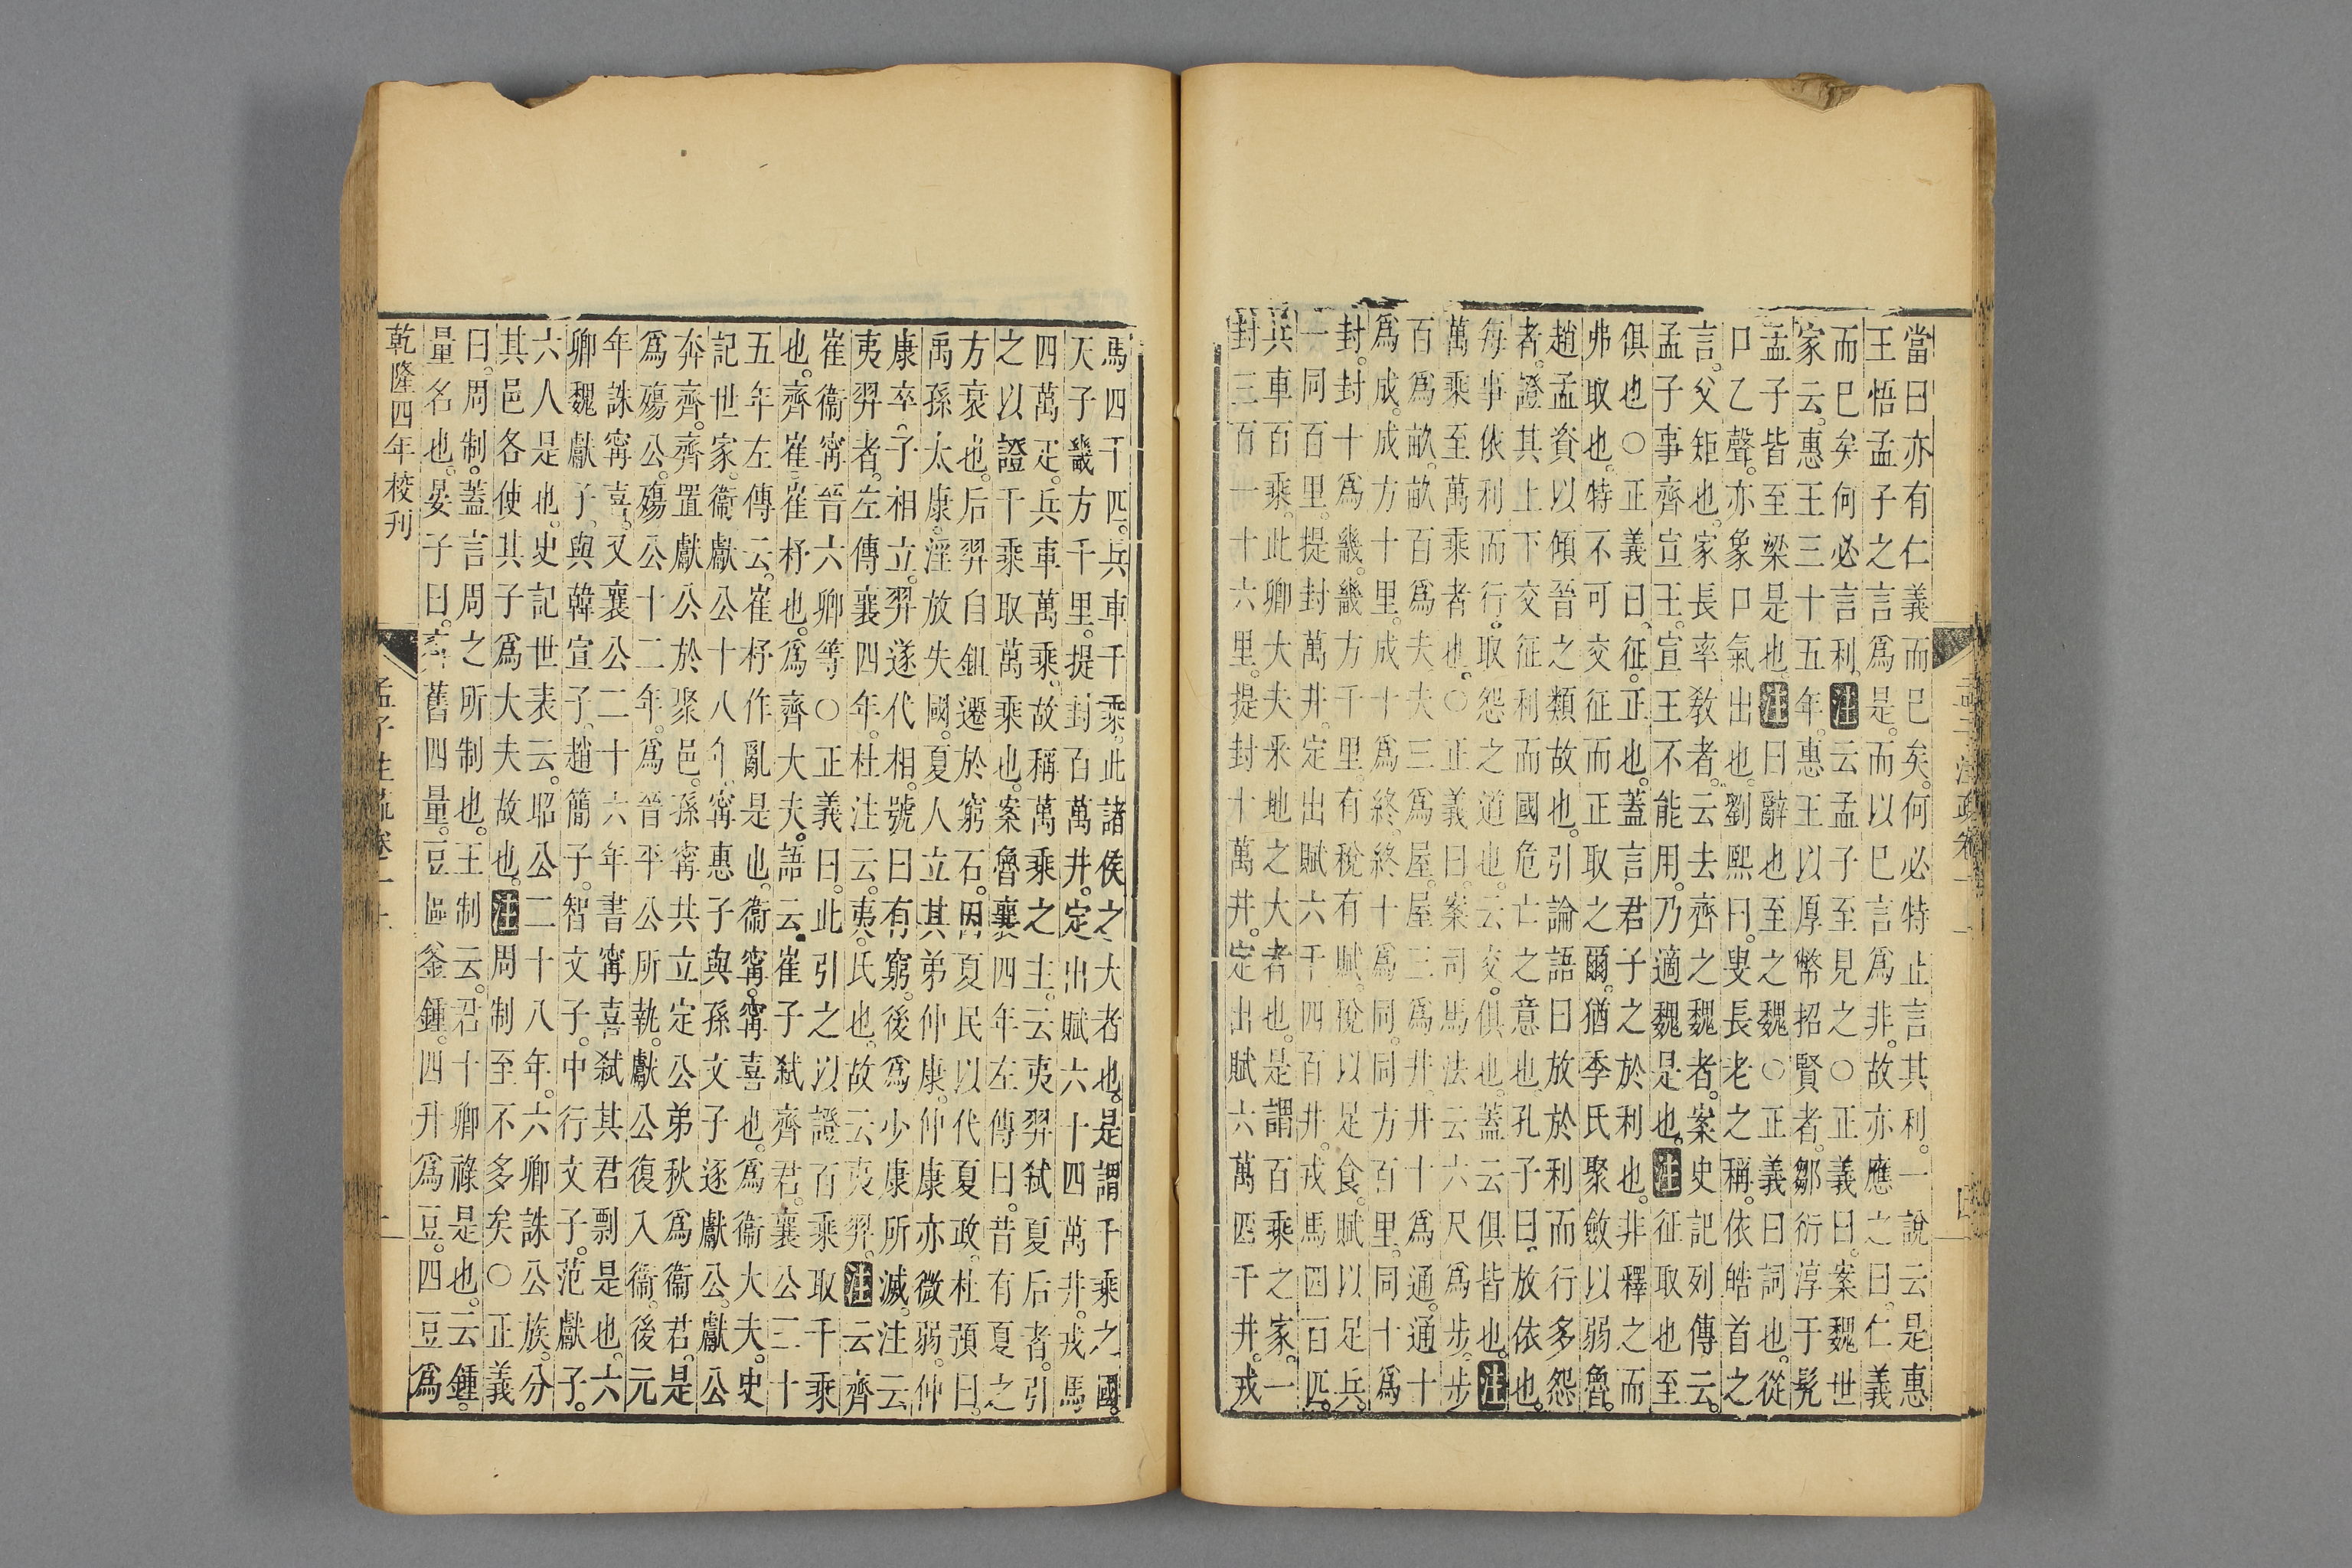 當曰亦有仁義而已矣何必特止言其利一說云是惠
王悟孟子之言爲是而以已言爲非故亦應之曰仁義
而已矣何必言利注云孟子至見之○正義曰案魏世
家云惠王三十五年惠王以厚幣招賢者鄒衍淳于髡
孟子皆至梁是也注曰辭也至之魏○正義曰詞也從
口乙聲亦象口氣出也劉熙曰叟長老之稱依皓首之
言父矩也家長率教者云去齊之魏者案史記列傳云
孟子事齊宣王宣王不能用乃適魏是也注征取也至
俱也○正義曰征正也蓋言君子之於利也非釋之而
弗取也特不可交征而正取之爾猶季氏聚斂以弱魯
趙孟資以傾晉之類故也引論語曰放於利而行多怨
者證其上下交征利而國危亡之意也孔子曰放依也
每事依利而行取怨之道也云交俱也蓋云俱皆也注
萬乘至萬乘者也○正義曰案司馬法云六尺爲步步
百爲畝畝百爲夫夫三爲屋屋三爲井井十爲通通十
爲成成方十里成十爲終終十爲同同方百里同十爲
封封十爲畿畿方千里有稅有賦稅以足食賦以足兵
一同百里提封萬井定出賦六千四百井戎馬四百匹
兵車百乘此卿大夫采地之大者也是謂百乘之家一
封三百一十六里提封十萬井定出賦六萬匹千井戎
馬四千匹兵車千乘此諸侯之大者也是謂千乘之國
天子畿方千里提封百萬井定出賦六十四萬井戎馬
四萬疋兵車萬乘故稱萬乘之主云夷羿弒夏后者引
之以證千乘取萬乘也案魯襄四年左傳曰昔有夏之
方衰也后羿自鉏遷於窮石因夏民以代夏政杜預曰
禹孫太康淫放失國夏人立其弟仲康仲康亦微弱仲
康卒子相立羿遂代相號曰有窮後爲少康所滅注云
夷羿者左傳襄四年杜注云夷氏也故云夷羿注云齊
崔衞甯晉六卿等○正義曰此引之以證百乘取千乘
也齊崔崔杼也爲齊大夫語云崔子弒齊君襄公三十
五年左傳云崔杼作亂是也衞甯甯喜也爲衞大夫史
記世家衞獻公十八年甯惠子與孫文子逐獻公獻公
奔齊齊置獻公於聚邑孫甯共立定公弟秋爲衞君是
爲殤公殤公十二年爲晉平公所執獻公復入衞後元
年誅甯喜又襄公二十六年書甯喜弒其君剽是也六
卿魏獻子與韓宣子趙簡子智文子中行文子范獻子
六人是也史記世表云昭公二十八年六卿誅公族分
其邑各使其子爲大夫故也注周制至不多矣○正義
曰周制蓋言周之所制也王制云君十卿祿是也云鍾
量名也晏子曰齊舊四量豆區釜鍾四升爲豆四豆爲
乾隆四年校刊
孟子注疏卷一上